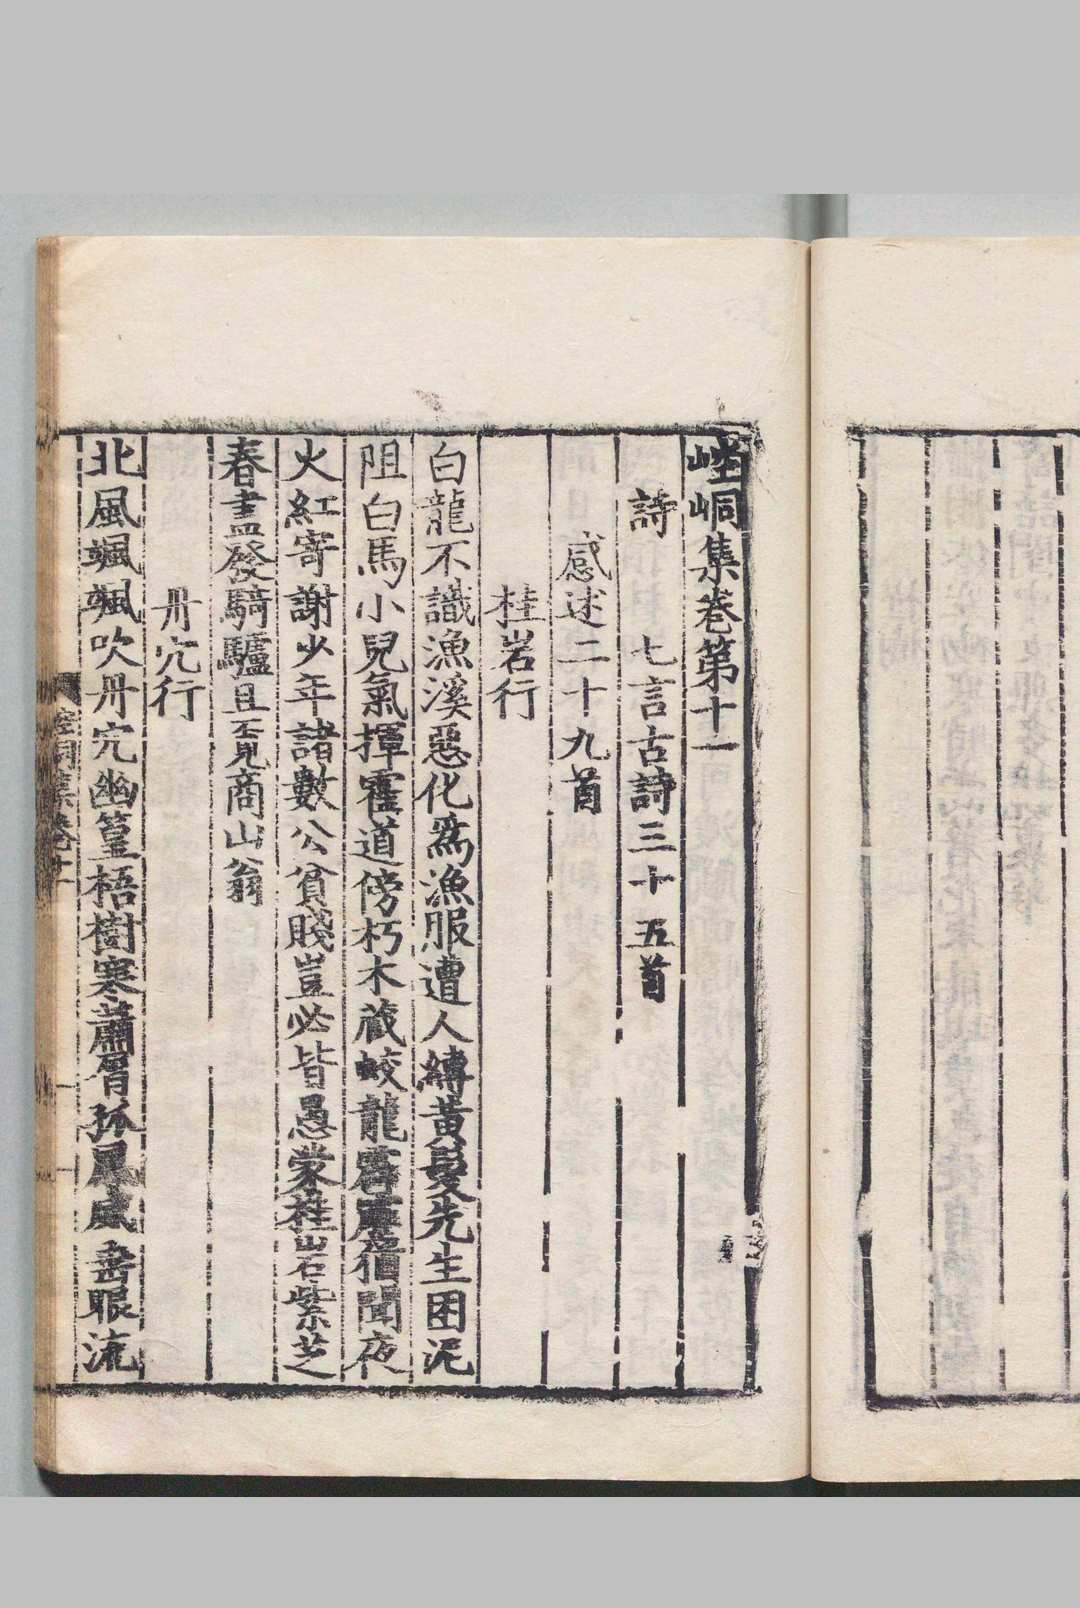 崆峒集巻第十一
詩　七言古詩三十五首
感述二十九首
桂岩行
白龍不識漁溪惡化爲漁服遭人縛黃髮先生困泥
阻白馬小兒氣揮霍道傍朽木蔵蛟龍
聞夜
火紅寄謝少年諸數公貧賤豈必皆愚蒙桂岩紫芝
春盡發騎驢且覔商山翁
丹穴行
北風颯颯吹丹穴幽篁梧樹寒蕭屑孤鳳
垂眼流